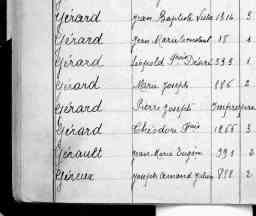 Gérard Jean Baptiste Victor 1316 3
Gérard Jean Marie Constant 18 1
Gérard Léopold Fçois Désiré 593 1
Gérard Marie Joseph 886 2
Gérard Pierre Joseph Impropre
Gérard Théodore Fçois 1266 3
Gérault Jean Marie Eugène 991 2
Géreux Joseph Armand Julien 898 2